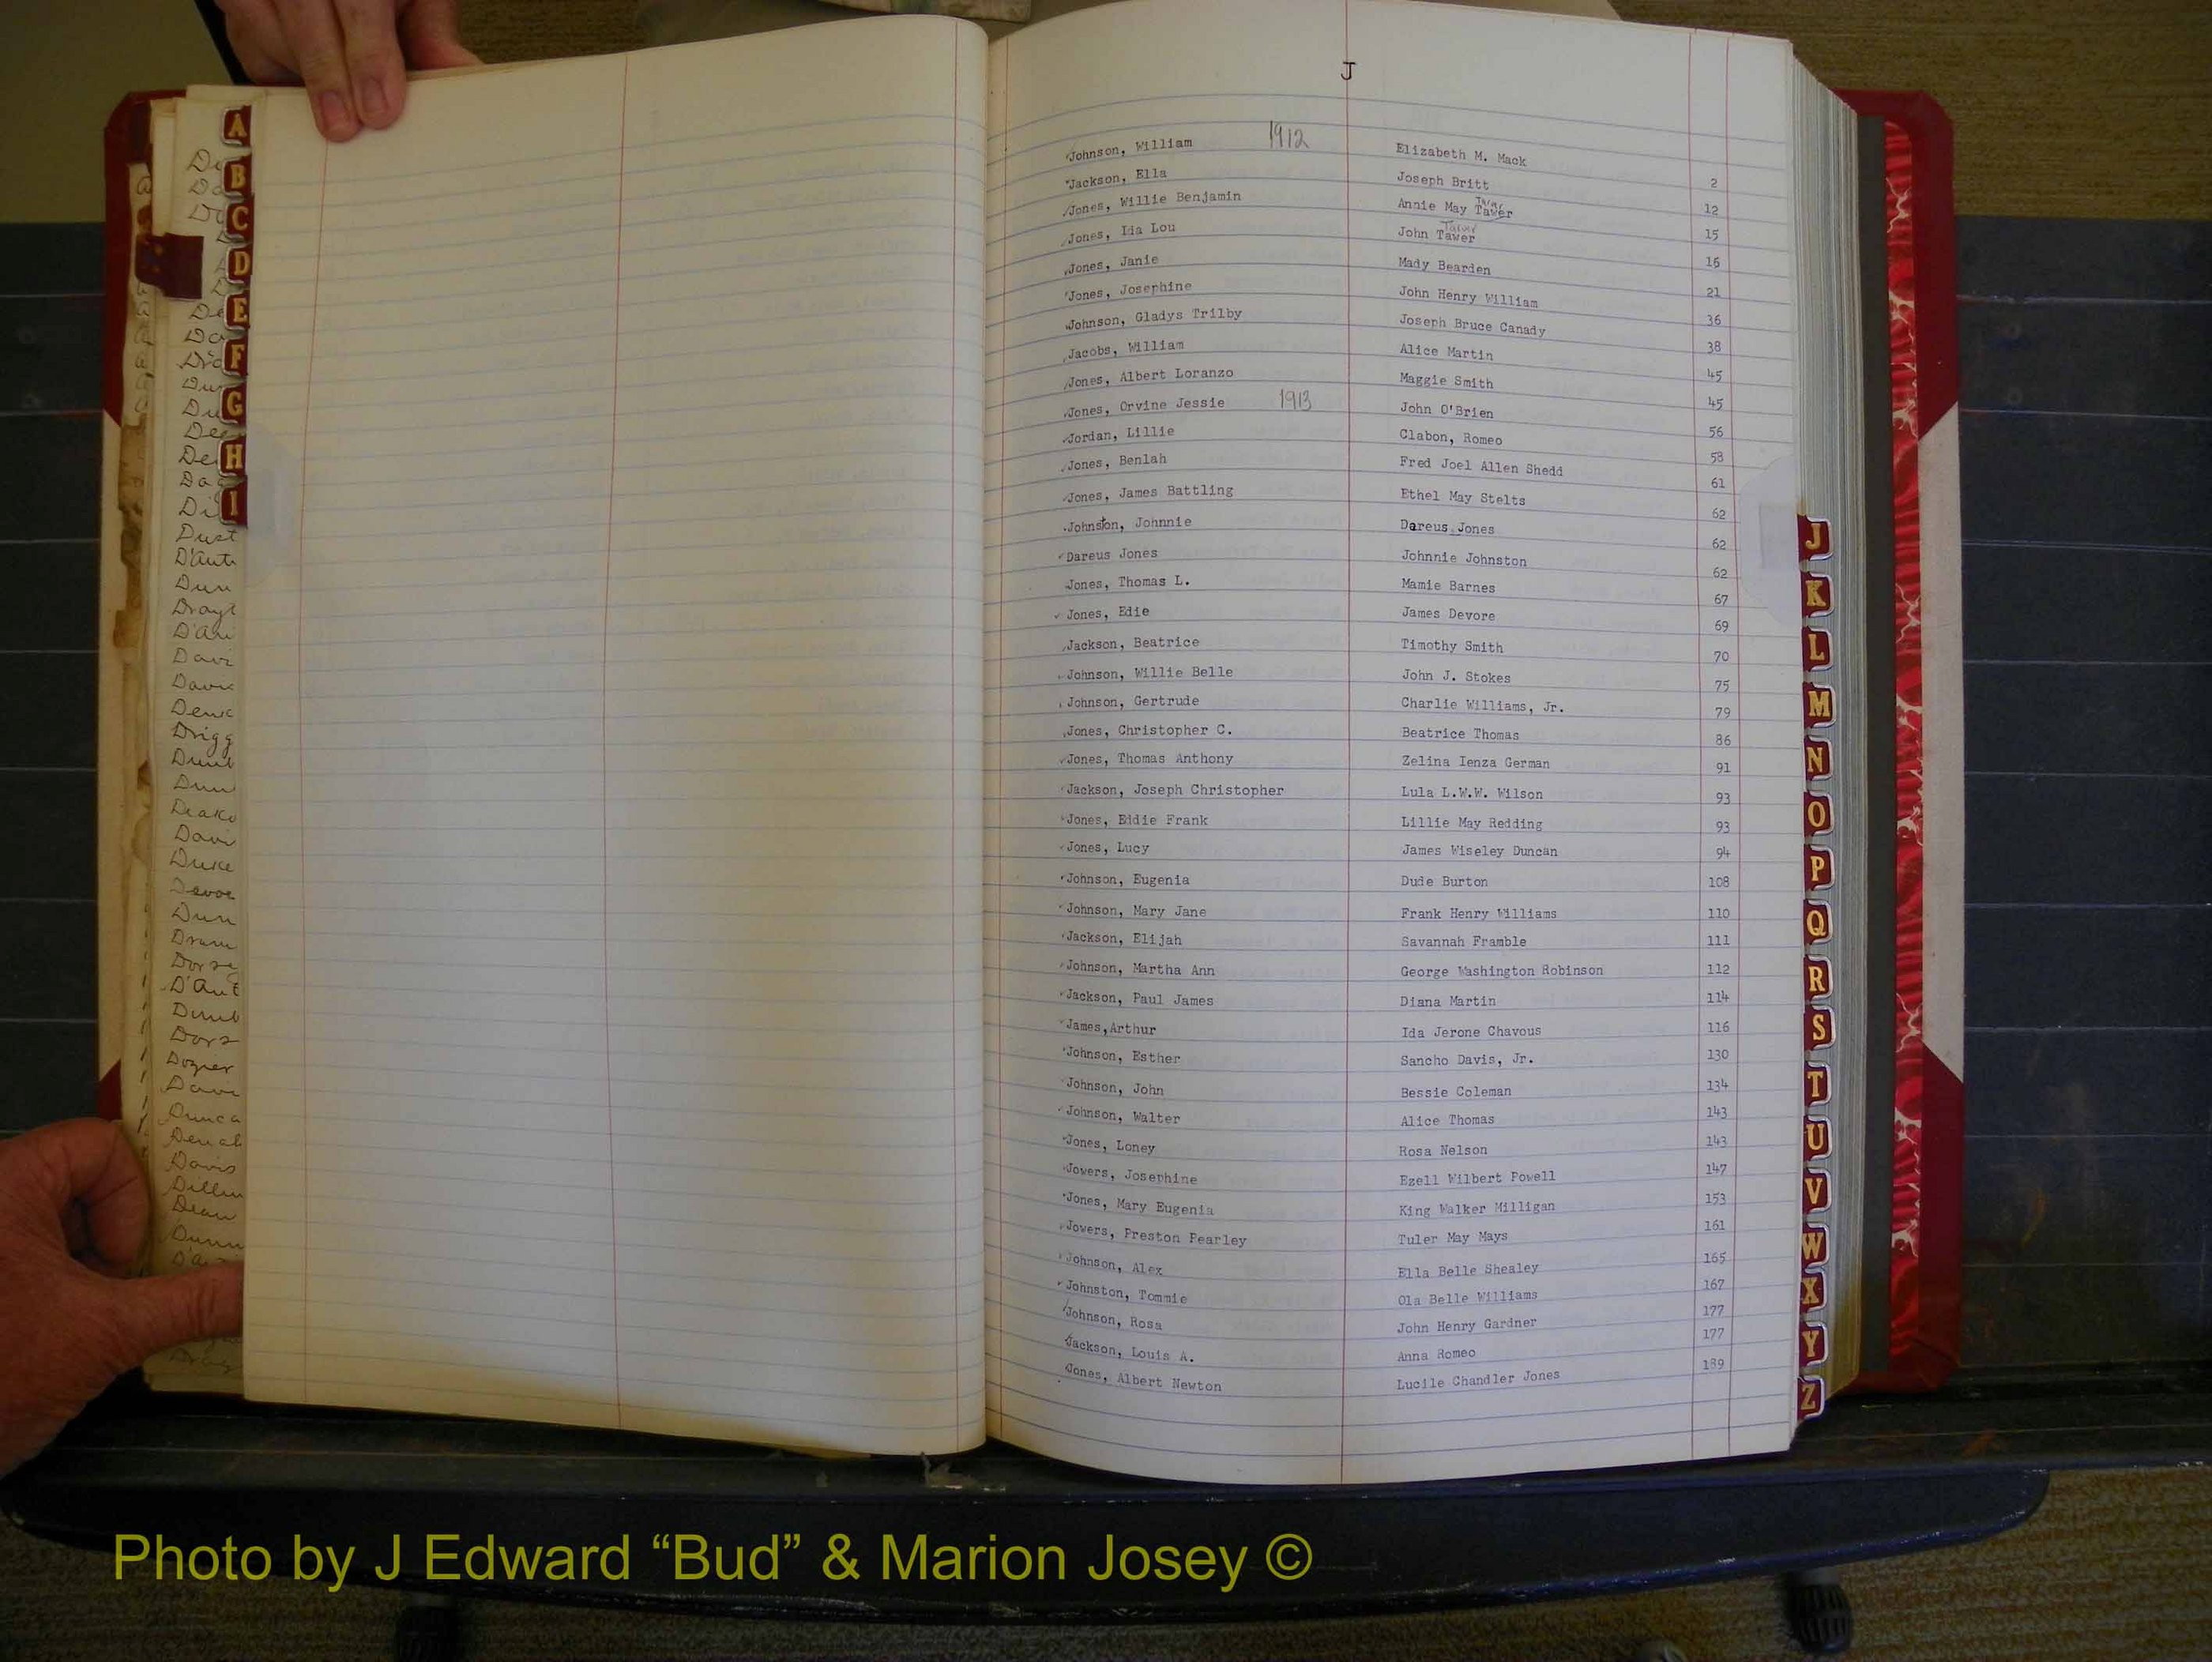 J
Johnson, William 1912 Elizabeth M. Mack 2
Jackson, Ella Joseph Britt 12
Jones, Willie Benjamin Annie May Tawer Tarver 15
Jones, Ida Lou John Tawer Tarver 16
Jones, Janie Mady Bearden 21
Jones, Josephine John Henry William 36
Johnson, Gladys Trilby Joseph Bruce Canady 38
Jacobs, William Alice Martin 45
Jones, Albert Loranzo Maggie Smith 45
Jones, Orvine Jessie 1913 John O'Brien 56
Jordan, Lillie Clabon, Romeo 58
Jones, Benlah Fred Joel Allen Shedd 61
Jones, James Battling Ethel May Stelts 62
Johnston, Johnnie Dareus Jones 62
Dareus Jones Johnnie Johnston 62
Jones, Thomas L. Mamie Barnes 67
Jones, Edie James Devore 69
Jackson, Beatrice Timothy Smith 70
Johnson, Willie Belle John J. Stokes 75
Johnson, Gertrude Charlie Williams, Jr. 79
Jones, Christopher C. Beatrice Thomas 86
Jones, Thomas Anthony Zelina Ienza German 91
Jackson, Joseph Christopher Lula L.W.W. Wilson 93
Jones, Eddie Frank Lillie May Redding 93
Jones, Lucy James Wiseley Duncan 94
Johnson, Eugenia Dude Burton 108
Johnson, Mary Jane Frank Henry Williams 110
Jackson, Elijah Savannah Framble 111
Johnson, Martha Ann George Washington Robinson 112
Jackson, Paul James Diana Martin 114
James, Arthur Ida Jerone Chavous 116
Johnson, Esther Sancho Davis, Jr. 130
Johnson, John Bessie Coleman 134
Johnson, Walter Alice Thomas 143
Jones, Loney Rosa Nelson 143
Jowers, Josephine Ezell Wilbert Powell 147
Jones, Mary Eugenia King Walker Milligan 153
Jowers, Preston Pearley Tuler May Mays 161
Johnson, Alex Ella Belle Shealey 165
Johnston, Tommie Ola Belle Williams 167
Johnson, Rosa John Henry Gardner 177
Jackson, Louis A. Anna Romeo 177
Jones, Albert Newton Lucile Chandler Jones 189
A
B
C
D
E
F
G
H
I
J
K
L
M
N
O
P
Q
R
S
T
U
V
W
X
Y
Z
Photo by J Edward “Bud” & Marion Josey ©